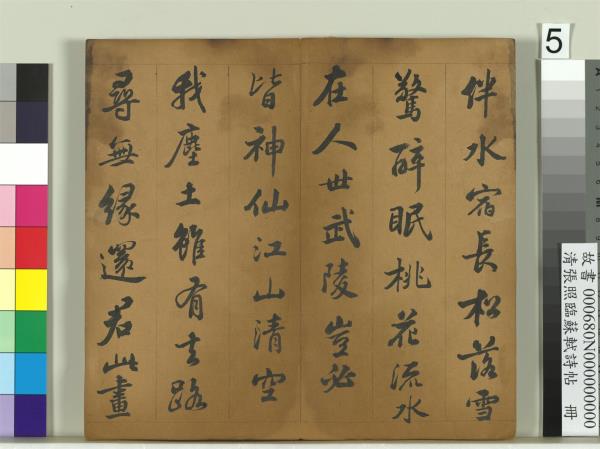 伴水宿長松落雪
驚醉眠桃花流水
在人世武陵豈必
皆神仙江山清空
我塵土雖有去路
尋無緣還君此畫
5
故書 000680N000000000
清張照臨蘇軾詩帖 冊